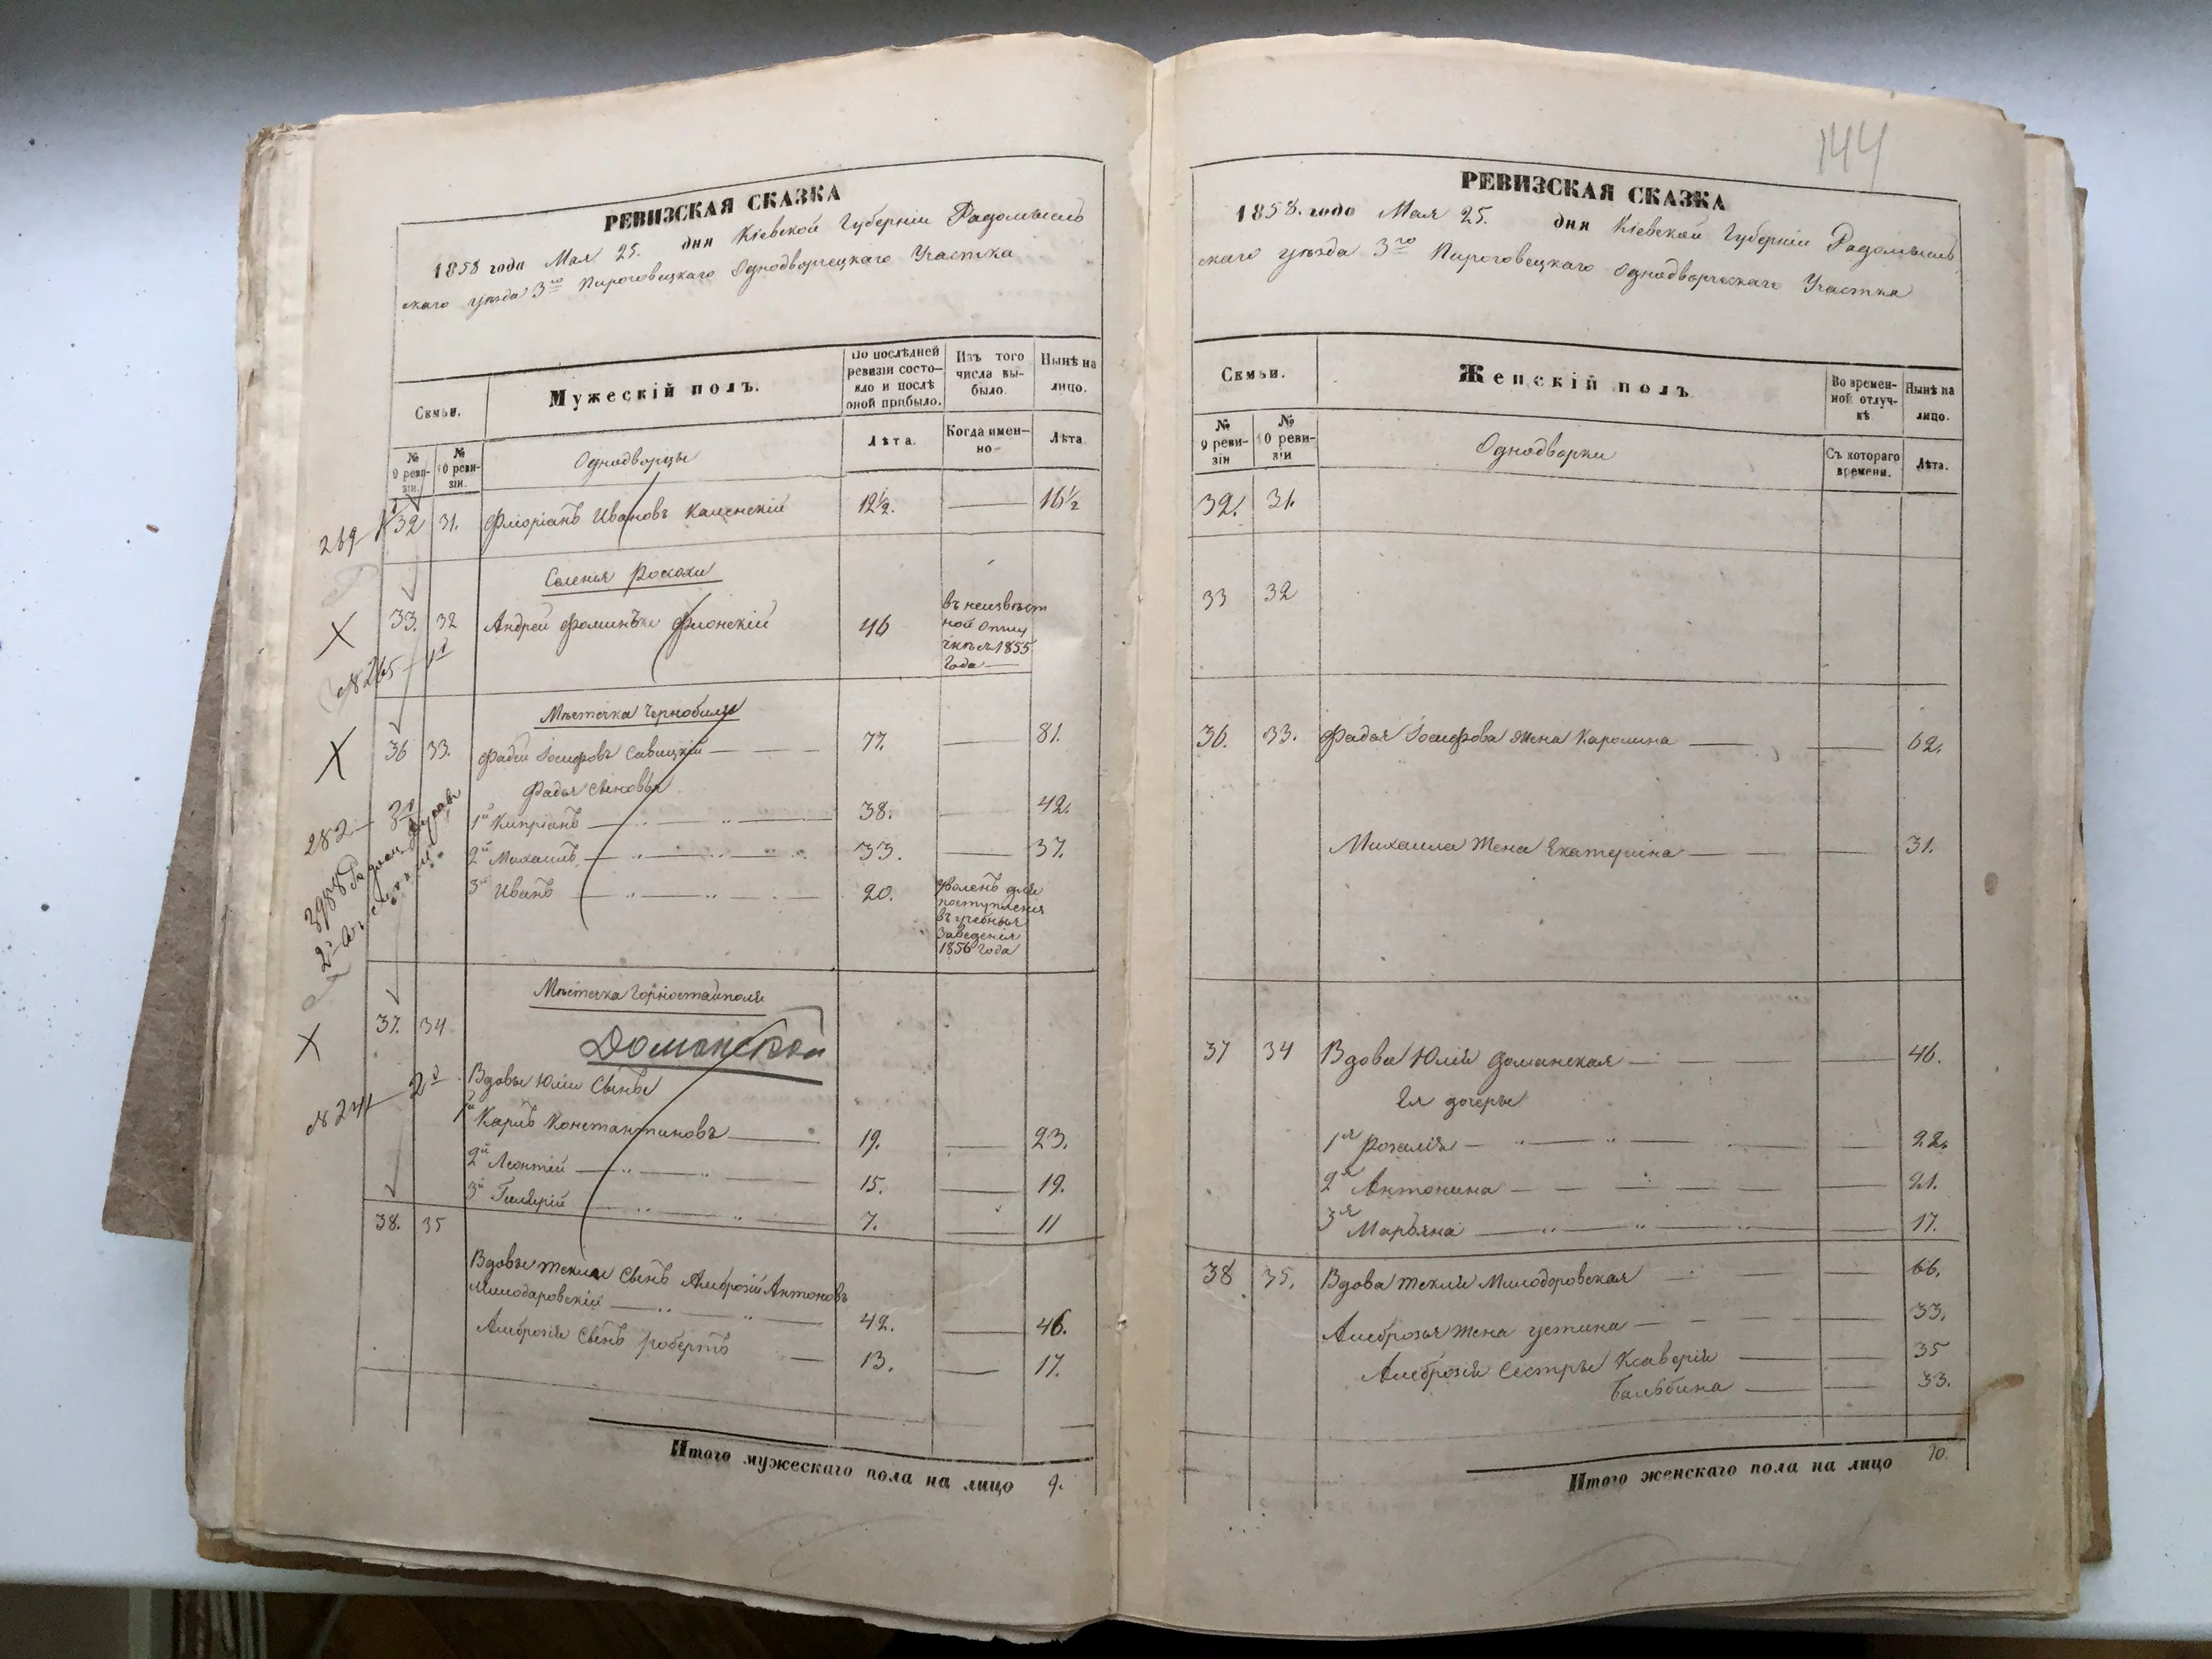 144
РЕВИЗСКАЯ СКАЗКА
1858 года Мая 25. дня Кіевской Губерніи Радомысль
скаго уѣзда 3го Пироговецкаго Однодворецкаго Участка
Семьи.
Мужескій полъ.
По послѣдней ревизіи состояло и послѣ оной прибыло.
Изъ того числа выбыло.
Нынѣ на лицо.
№ 9 ревизіи.
№ 10 ревизіи.
Однодворцы
Лѣта.
Когда именно
Лѣта.
269 32 31. Флоріанъ Ивановъ Каменскій 12½. — 16½
Селенія Росохи
33. 32 Андрей Фоминъ Флонскій 46 въ неизвѣст
ной отлу
чкѣ съ 1855
года —
№ 265 — 1й
Мѣстечка Чернобыля
36 33. Фадей Іосифовъ Савицкій — 77. — 81.
Фадея сыновья
282 — 1й Кипріанъ — 38. — 42.
2й Михаилъ — 33. — 37.
3й Иванъ — 20. уволенъ для
поступленія
въ учебныя
заведенія
1856 года
Мѣстечка Горностайполя
37. 34
Доманской
Вдовы Юліи сыны
№ 241 — 2й
1й Карлъ Константиновъ — 19. — 23.
2й Леонтій — 15. — 19.
3й Валерій — 7. — 11
38. 35
Вдовы Теклы сынъ Амброзій Антоновъ
Милодаровскій — 42. — 46.
Амброзія сынъ Робертъ — 13. — 17.
Итого мужескаго пола на лицо 9.
РЕВИЗСКАЯ СКАЗКА
1858. года Мая 25. дня Кіевской Губерніи Радомысль
скаго уѣзда 3го Пироговецкаго Однодворческаго Участка
Семьи.
Женскій полъ.
Во временной отлучкѣ.
Нынѣ на лицо.
№ 9 ревизіи
№ 10 ревизіи
Однодворки
Съ котораго времени.
Лѣта.
32. 31.
33 32
36. 33. Фадея Іосифова жена Каролина — — 62.
Михаила жена Екатерина — — 31.
37 34 Вдова Юлія Доманская — — 46.
Ея дочери
1я Розалія — — 22.
2я Антонина — — 21.
3я Марьяна — — 17.
38 35. Вдова Текля Милодоровская — 66.
Амброзія жена Устина — 33.
Амброзія сестры Ксаверія — — 35
Бальбина — — 33.
Итого женскаго пола на лицо 10.